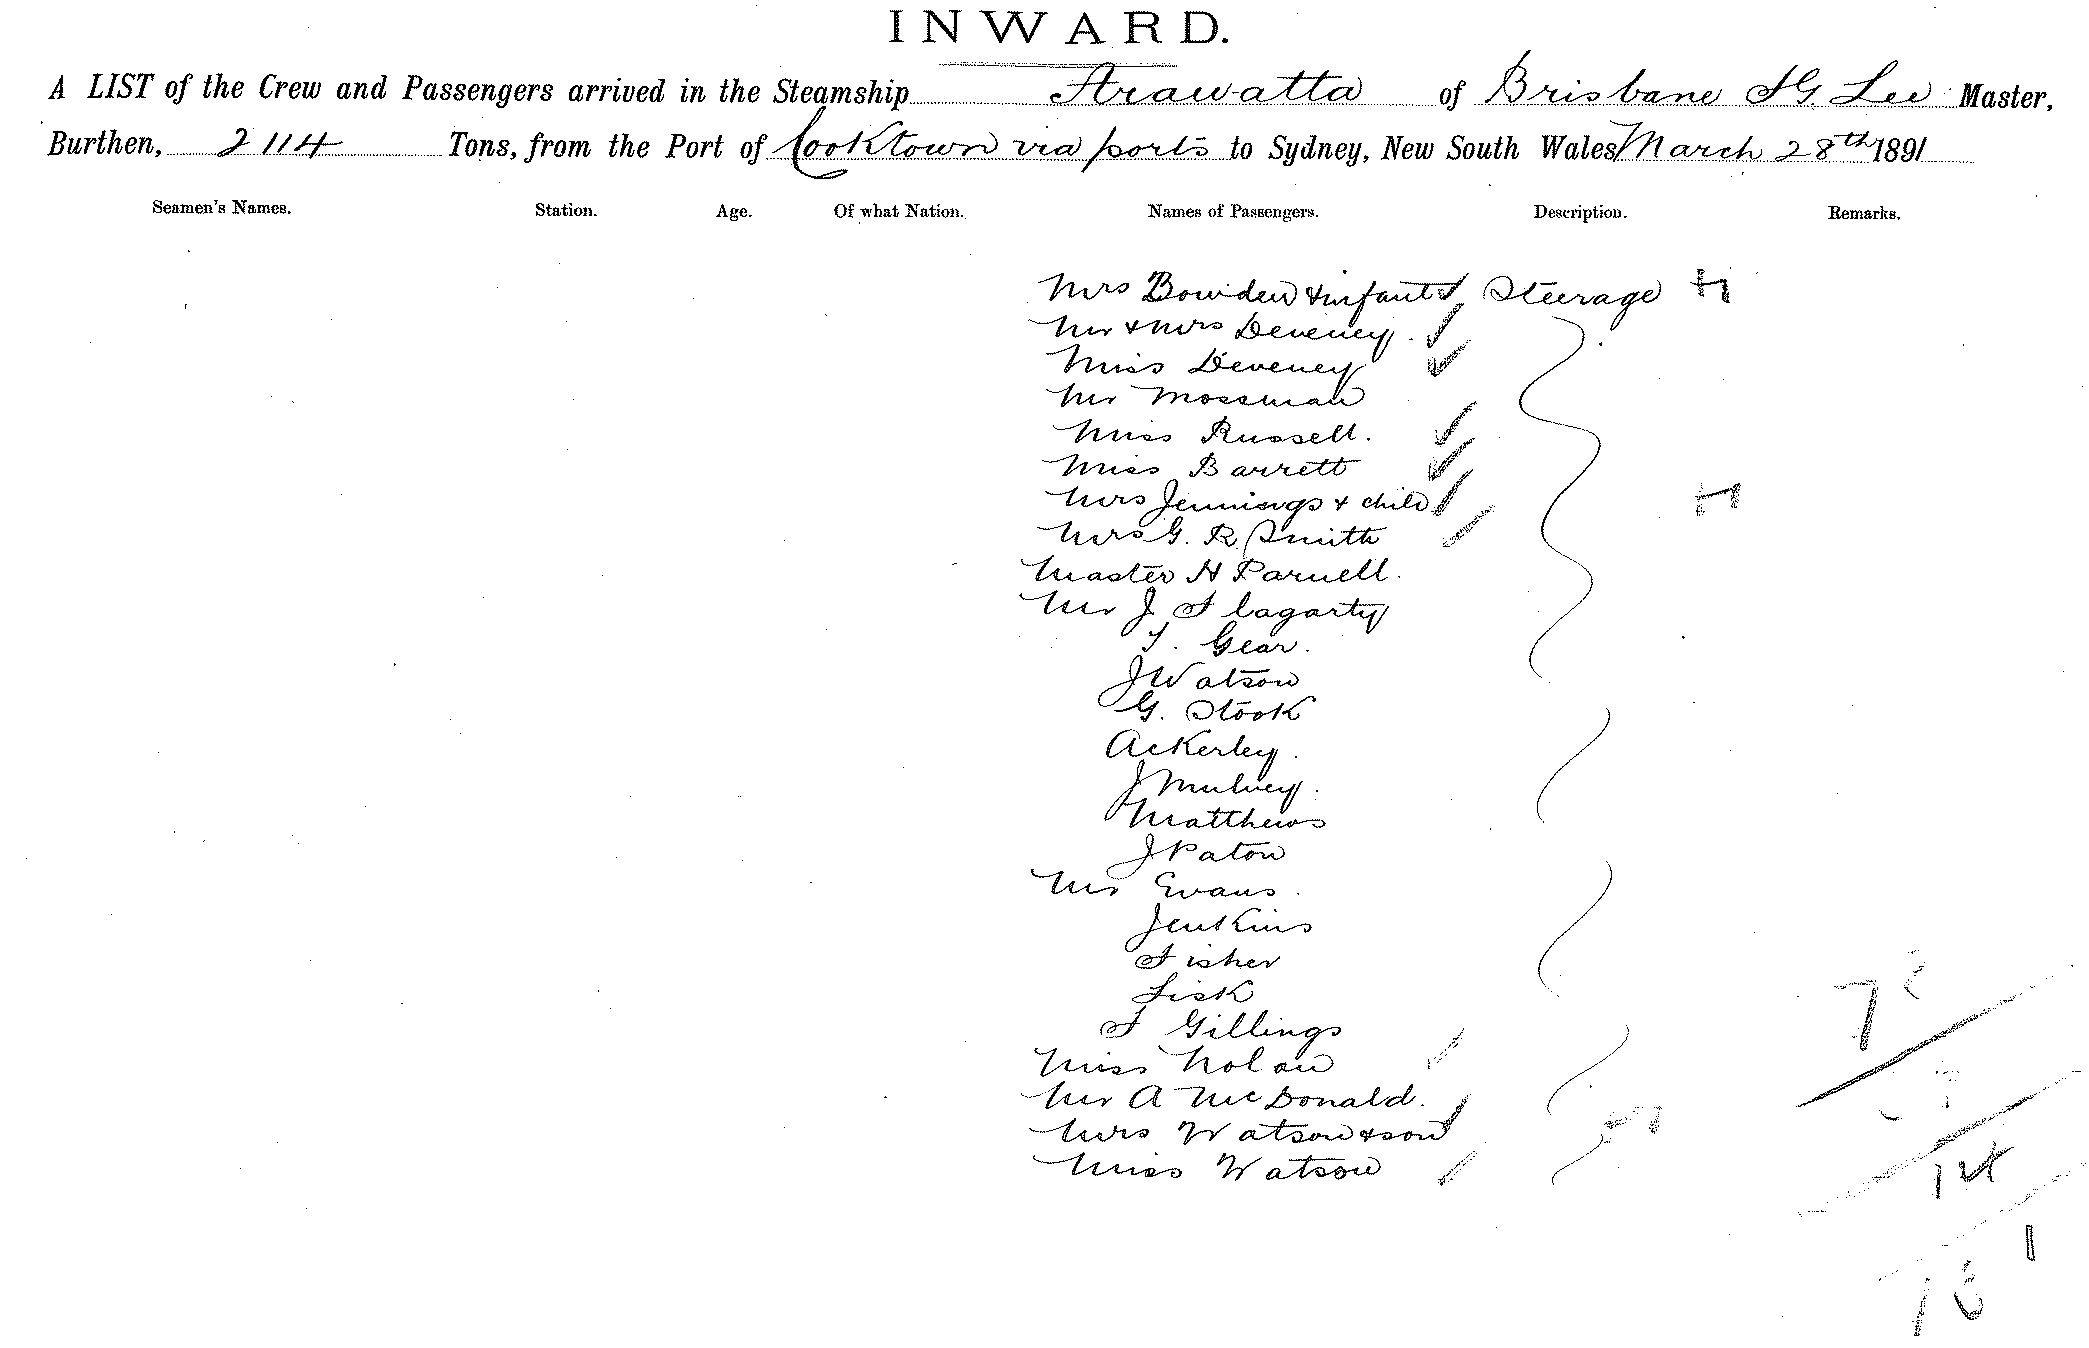 INWARD.
A LIST of the Crew and Passengers arrived in the Steamship Arawatta of Brisbane J G. Lee Master,
Burthen, 2114 Tons, from the Port of Cooktown via ports to Sydney, New South Wales March 28th 1891
Seamen's Names. Station. Age. Of what Nation. Names of Passengers. Description. Remarks.
Mrs Bowden & infant Steerage
Mr & Mrs Deveney.
Miss Deveney
Mr Mossman
Miss Russell.
Miss Barrett
Mrs Jennings & child
Mrs G. R. Smith
Master H Parnell.
Mr J Flagarty
T. Gear.
J Watson
G. Stook
Ackerley.
J Mulvey.
Matthews
J Paton
Mr Evans.
Jenkins
Fisher
Lisk
F Gillings
Miss Nolan
Mr A McDonald.
Mrs Watson & son
Miss Watson